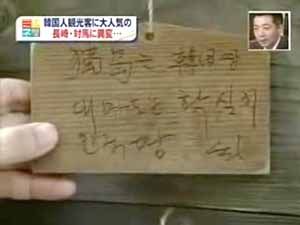 韓国人観光客に大人気の
長崎・対馬に異変…
獨島는 韓国땅
대마도는 확실히
한국땅